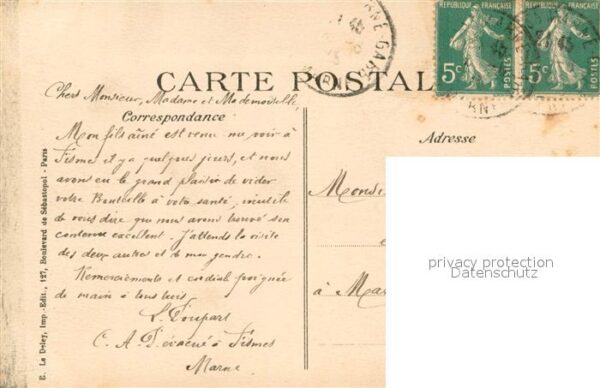 RÉPUBLIQUE FRANÇAISE RÉPUBLIQUE FRANÇAISE
5c POSTES 5c POSTES
CARTE POSTALE
Chers Monsieur, Madame et Mademoiselle,
Correspondance
Mon fils aîné est venu me voir à
Fismes il y a quelques jours, et nous
avons eu le grand plaisir de vider
votre Bouteille à votre santé, inutile
de vous dire que nous avons trouvé son
contenu excellent. J'attends la visite
des deux autres et de mon gendre.
Remerciements et cordiale poignée
de main à tous
L. Poupart
C. A. D. évacué à Fismes
Marne
Adresse
à
privacy protection
Datenschutz
E. Le Deley, Imp.-Edit., 127, Boulevard de Sébastopol - Paris